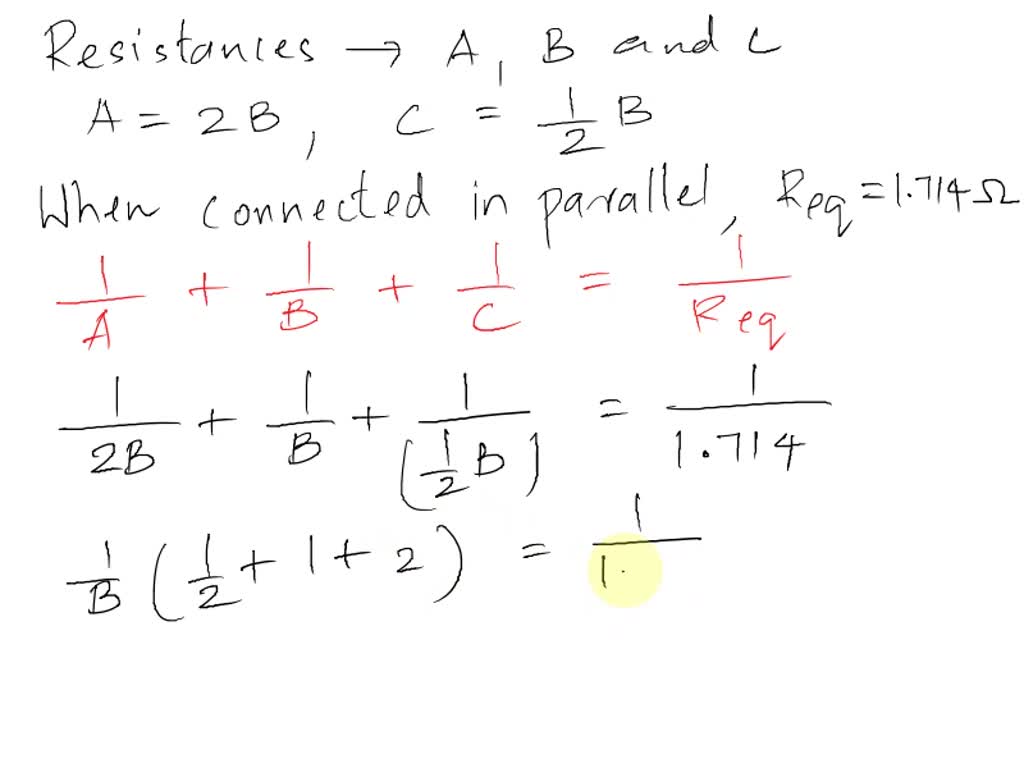 Resistances → A, B and C
A = 2B, C = 1/2 B
When connected in parallel, Req = 1.714 Ω
1/A + 1/B + 1/C = 1/Req
1/2B + 1/B + 1/(1/2 B) = 1/1.714
1/B (1/2 + 1 + 2) = 1/1.